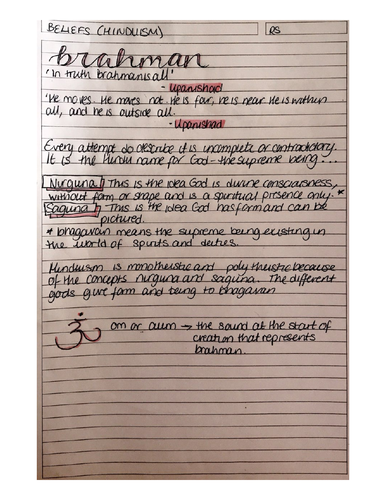 BELIEFS (HINDUISM)
RS
brahman
'In truth brahman is all'
- Upanishad
'He moves. He moves not. He is far, he is near. He is within
all, and he is outside all.
- Upanishad
Every attempt do describe it is incomplete or contradictory.
It is the Hindu name for God - the supreme being...
Nirguna: This is the idea God is divine consciousness,
without form or shape and is a spiritual presence only. *
Saguna: This is the idea God has form and can be
pictured.
* bhagavan means the supreme being existing in
the world of spirits and deities.
Hinduism is monotheistic and polytheistic because
of the concepts nirguna and saguna. The different
gods give form and being to Bhagavan
ॐ om or aum → the sound at the start of
creation that represents
brahman.